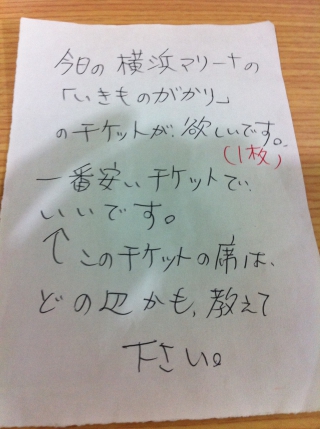 今日の横浜マリーナの
「いきものがかり」
のチケットが欲しいです。
(1枚)
一番安いチケットで
いいです。
↑このチケットの席は、
どの辺かも、教えて
下さい。